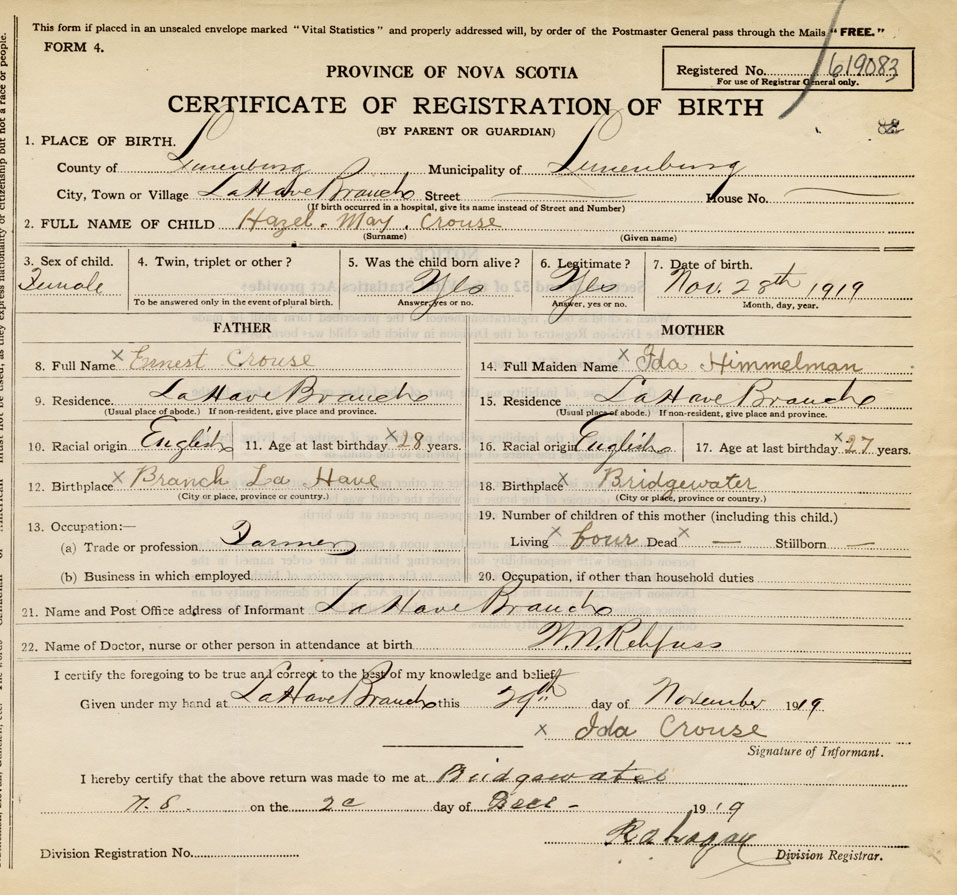 This form if placed in an unsealed envelope marked "Vital Statistics" and properly addressed will, by order of the Postmaster General pass through the Mails "FREE."
FORM 4.
Registered No. 619083
For use of Registrar General only.
PROVINCE OF NOVA SCOTIA
CERTIFICATE OF REGISTRATION OF BIRTH
(BY PARENT OR GUARDIAN)
1. PLACE OF BIRTH.
County of Lunenburg Municipality of Lunenburg
City, Town or Village LaHave Branch Street House No.
(If birth occurred in a hospital, give its name instead of Street and Number)
2. FULL NAME OF CHILD Hazel May Crouse
(Surname) (Given name)
3. Sex of child. 4. Twin, triplet or other? 5. Was the child born alive? 6. Legitimate? 7. Date of birth.
Female Yes Yes Nov. 28th 1919
To be answered only in the event of plural birth. Answer, yes or no. Answer, yes or no. Month, day, year.
FATHER MOTHER
8. Full Name × Ernest Crouse 14. Full Maiden Name × Ida Himmelman
9. Residence. LaHave Branch 15. Residence LaHave Branch
(Usual place of abode.) If non-resident, give place and province. (Usual place of abode.) If non-resident, give place and province.
10. Racial origin English 11. Age at last birthday × 28 years. 16. Racial origin English 17. Age at last birthday × 27 years.
12. Birthplace × Branch La Have 18. Birthplace × Bridgewater
(City or place, province or country.) (City or place, province or country.)
13. Occupation:— 19. Number of children of this mother (including this child.)
(a) Trade or profession Farmer Living × four Dead × — Stillborn —
(b) Business in which employed 20. Occupation, if other than household duties
21. Name and Post Office address of Informant LaHave Branch
22. Name of Doctor, nurse or other person in attendance at birth W.N. Rehfuss
I certify the foregoing to be true and correct to the best of my knowledge and belief.
Given under my hand at LaHave Branch this 29th day of November 1919
× Ida Crouse
Signature of Informant.
I hereby certify that the above return was made to me at Bridgewater
N.S. on the day of Dec - 1919
Division Registration No. Division Registrar.